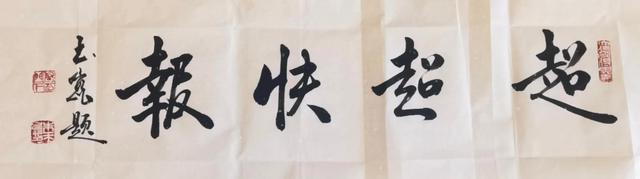 超超快報
玉巖題